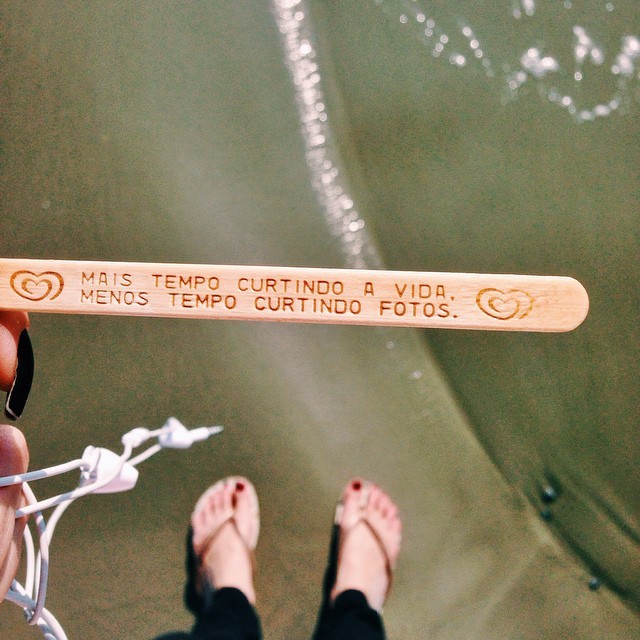 MAIS TEMPO CURTINDO A VIDA,
MENOS TEMPO CURTINDO FOTOS.